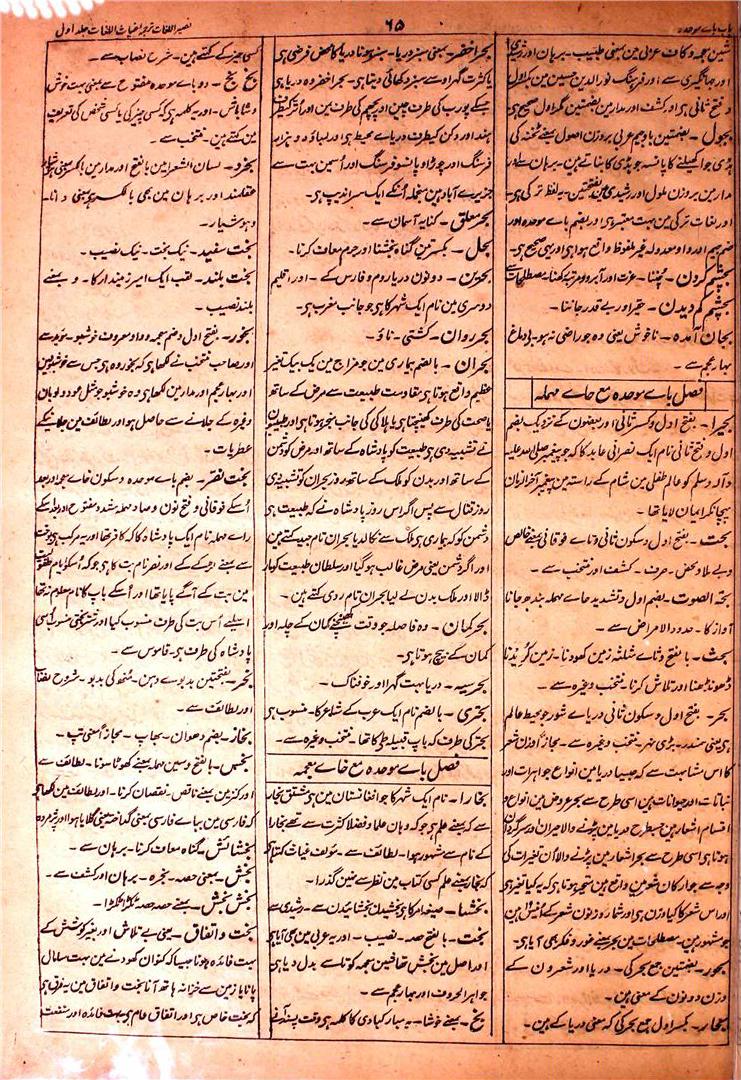 باب باے موحدہ
۶۵
نصیر اللغات ترجمہ غیاث اللغات جلد اول
شین معجمہ و کاف عربی جن بمعنی طبیب۔ برہان اور رشیدی
اور جہانگیری سے اور فرہنگ نور الدین حسین مین بکسر اول
و فتح ثانی ہی اور کشف اور مدار مین بفتحتین مگر اول صحیح ہی
بجول۔ بضمتین باوجیم عربی بروزن اصول بمعنے ٹخنہ کی
ہڈی جوا کھیلنے کا پانسہ جو ہڈی کا بناتے ہین۔ برہان سے اور
مدار مین بروزن ملول اور رشیدی مین بفتحتین۔ یہ لفظ ترکی ہی۔
اور لغات ترکی مین بہت معتبر ہی اور بضم باے موحدہ اور
ضم جیم اور واو معدولہ غیر ملفوظ واقع ہوا ہی اور یہی صحیح ہی۔
بچشم کردن۔ عزت اور آبرو و مرتبہ رکھنا۔ مصطلحات سے
بچشم کم دیدن۔ حقیر اور بے قدر جاننا۔
بجان آمدہ۔ ناخوش یعنی وہ جو راضی نہو۔ بی دماغ
بہار عجم سے۔
فصل باے موحدہ مع حاے مہملہ
بحیرا۔ بفتح اول و کسر ثانی اور بعضون کے نزدیک بضم
اول و فتح ثانی نام ایک نصرانی عابد کا کہ جو پیغمبر صلی اللہ علیہ
و آلہ وسلم کو عالم طفلی مین شام کے راستہ مین پیغمبر آخر الزمان
پہچانکر ایمان لایا تھا۔
بحت۔ بفتح اول و سکون ثانی و تاے فوقانی بمعنے خالص
و بے ملاو محض۔ صرف۔ کشف اور منتخب سے۔
بحۃ الصوت۔ بضم اول و تشدید حاے مہملہ بندھ جانا
آواز کا۔ حدود الامراض سے۔
بحث۔ بالفتح و ثاے مثلثہ زمین کھودنا۔ زمین کریدنا
ڈھونڈھنا اور تلاش کرنا۔ منتخب وغیرہ سے۔
بحر۔ بفتح اول و سکون ثانی دریاے شور جو محیط عالم
ہی یعنی سمندر۔ بڑی نہر۔ منتخب وغیرہ سے۔ مجازاً وزن شعر
کا اس مشابہت سے کہ جیسا دریا مین انواع جواہرات اور
نباتات اور حیوانات ہین اسی طرح سے بحر عروض مین انواع و
اقسام اشعار ہین جس طرح دریا مین پڑنے والا حیران اور سرگردان
ہوتا ہی اسی طرح سے بحر اشعار مین پڑنے والا اُن تغیرات کی
وجہ سے جو ارکان شعر مین واقع ہین متحیر ہوتا ہی کہ یہ کیا تغیر ہی
اور اس شعر کا کیا وزن ہی اور شمار وزنون شعر کے اُنیس ہین
جو مشہور ہین۔ مصطلحات مین بحر بمعنے غور و فکر بھی آیا ہی۔
بحور۔ بضمتین جمع بحر کی۔ دریا اور شعرون کے
وزن دونون کے معنی ہین۔
بحار۔ بکسر اول جمع بحر کی کہ معنی دریا کے ہین۔
بحر اخضر۔ بمعنی سبز دریا۔ سبز ہونا دریا کا محض فرضی ہی
یا کثرت گہراو سے سبز دکھائی دیتا ہی۔ بحر اخضر وہ دریا ہی
جسکے پورب کی طرف چین اور پچھم کی طرف یمن اور اُتر کیطرف
ہند اور دکن کیطرف دریاے محیط ہی اور لنباؤ دو ہزار
فرسنگ اور چوڑاو پانسو فرسنگ اور اُسمین بہت سے
جزیرے آباد ہین منجملہ اُنکے ایک سراندیپ ہی۔
بحر معلق۔ کنایہ آسمان سے۔
بحل۔ بکسرتین گناہ بخشنا اور جرم معاف کرنا۔
بحرین۔ دونون دریا روم و فارس کے۔ اور اقلیم
دوسری مین نام ایک شہر کا ہی جو جانب مغرب ہی۔
بحر روان۔ کشتی۔ ناؤ۔
بحران۔ بالضم بیماری مین جو مزاج مین یک بیک تغیر
عظیم واقع ہوتا ہی مقاومت طبیعت سے مرض کے ساتھ
یا صحت کی طرف کھینچتا ہی یا ہلاکی کی جانب منجر ہوتا ہی اور طبیبون
نے تشبیہ دی ہی طبیعت کو بادشاہ کے ساتھ اور مرض کو دشمن
کے ساتھ اور بدن کو ملک کے ساتھ روز بحران کو تشبیہ دی
روز قتال سے پس اگر اس روز بادشاہ نے کہ طبیعت ہی
دشمن کو کہ بیماری ہی ملک سے نکالدیا بحران تام جید کہتے ہین
اور اگر دشمن یعنی مرض غالب ہوگیا اور سلطان طبیعت کو مار
ڈالا اور ملک بدن لے لیا بحران تام ردی کہتے ہین۔
بحر کمان۔ وہ فاصلہ جو وقت کھینچنے کمان کے چلہ اور
کمان کے بیچ ہوتا ہی۔
بحر سیہ۔ دریا بہت گہرا اور خوفناک۔
بحتری۔ بالضم نام ایک عرب کے شاعر کا۔ منسوب ہی
بحتر کی طرف کہ باپ قبیلہ طی کا تھا۔ منتخب وغیرہ سے۔
فصل باے موحدہ مع خاے معجمہ
بخارا۔ نام ایک شہر کا جو افغانستان مین ہی مشتق بخار
سے کہ بمعنے علم ہی چونکہ وہان علما و فضلا کثرت سے تھے بخارا
کے نام سے مشہور ہوا۔ لطائف سے۔ مؤلف غیاث کہتا ہی
کہ بخار بمعنے علم کسی کتاب مین نظر سے نہین گذرا۔
بخشا۔ صیغہ امر کا ہی بخشیدن بخشائیدن سے۔ رشیدی سے
بخت۔ بالفتح حصہ۔ نصیب۔ اور یہ عربی مین بھی آیا ہی
اور اصل مین بخش تھا شین معجمہ کو تاے سے بدل دیا ہی
جواہر الحروف اور بہار عجم سے۔
بخ۔ بمعنے خوشا۔ یہ مبارکبادی کا کلمہ ہی وقت پسند آنے
کسی چیز کے کہتے ہین۔ شرح نصاب سے۔
بخ بخ۔ دو باے موحدہ مفتوح سے بمعنے بہت خوش
و شاباش۔ اور یہ کلمہ ہی کہ کسی چیز کی یا کسی شخص کی تعریف
مین کہتے ہین۔ منتخب سے۔
بخرد۔ لسان الشعرا مین بالفتح اور مدار مین بالکسر بمعنے ہوشیار
عقلمند اور برہان مین بھی بالکسر ہی بمعنی دانا۔
و ہوشیار۔
بخت سفید۔ نیک بخت۔ نیک نصیب۔
بخت بلند۔ لقب ایک امیر زمیندار کا۔ و بمعنے
بلند نصیب۔
بخور۔ بفتح اول و ضم معجمہ و واو معروف خوشبو۔ مؤید سے
اور صاحب منتخب نے لکھا ہی کہ بخور وہ ہی جس سے خوشبو لین
اور بہار عجم اور مدار مین لکھا ہی وہ خوشبو جو مثل عود و لوبان
وغیرہ کے جلانے سے حاصل ہو اور لطائف مین جلانیکے
عطریات۔
بخت نصر۔ بضم باے موحدہ و سکون خاے معجمہ اور بعد
اُسکے فوقانی و فتح نون و صاد مہملہ مشدد مفتوح اور بعد اُسکے
راے مہملہ نام ایک بادشاہ کا کہ کافر تھا اور یہ مرکب ہی بوخت
سے بمعنے لڑکے کے اور نصر نام بت کا ہی جو کہ اُسکو ایام طفولیت
مین بت کے آگے پایا تھا اور اُسکے باپ کا نام معلوم نہ تھا
اسلیے اُس بت کی طرف منسوب کیا اور سنہ بختی منسوب اُسی
بادشاہ کی طرف ہی۔ قاموس سے۔
بخر۔ بفتحتین بدبوے دہن۔ مُنھ کی بدبو۔ شروح نصاب
اور لطائف سے۔
بخار۔ بضم دھوان۔ بھاپ۔ مجازاً بمعنی تپ۔
بخس۔ بالفتح و سین مہملہ بمعنے کھوٹا سونا۔ لطائف سے
اور کنز مین بمعنے ناقص۔ نقصان کرنا۔ اور لطائف مین لکھا ہی
کہ فارسی مین بباے فارسی بمعنی گداختہ یعنی گلایا ہوا اور پژمردہ
بخشائش۔ گناہ معاف کرنا۔ برہان سے۔
بخش۔ بمعنی حصہ۔ بخرہ۔ برہان اور کشف سے۔
بخش بخش۔ بمعنے حصہ حصہ ٹکڑا ٹکڑا۔
بخت و اتفاق۔ یعنی بے تلاش اور بغیر کوشش کے
بہت فائدہ ہونا جیسا کہ کنوان کھودنے مین بہت سامال
پانا یا زمین سے خزانہ ہاتھ آنا بخت و اتفاق مین یہ فرق ہی
کہ بخت خاص ہی اور اتفاق عام جو بہت فائدہ اور منفعت